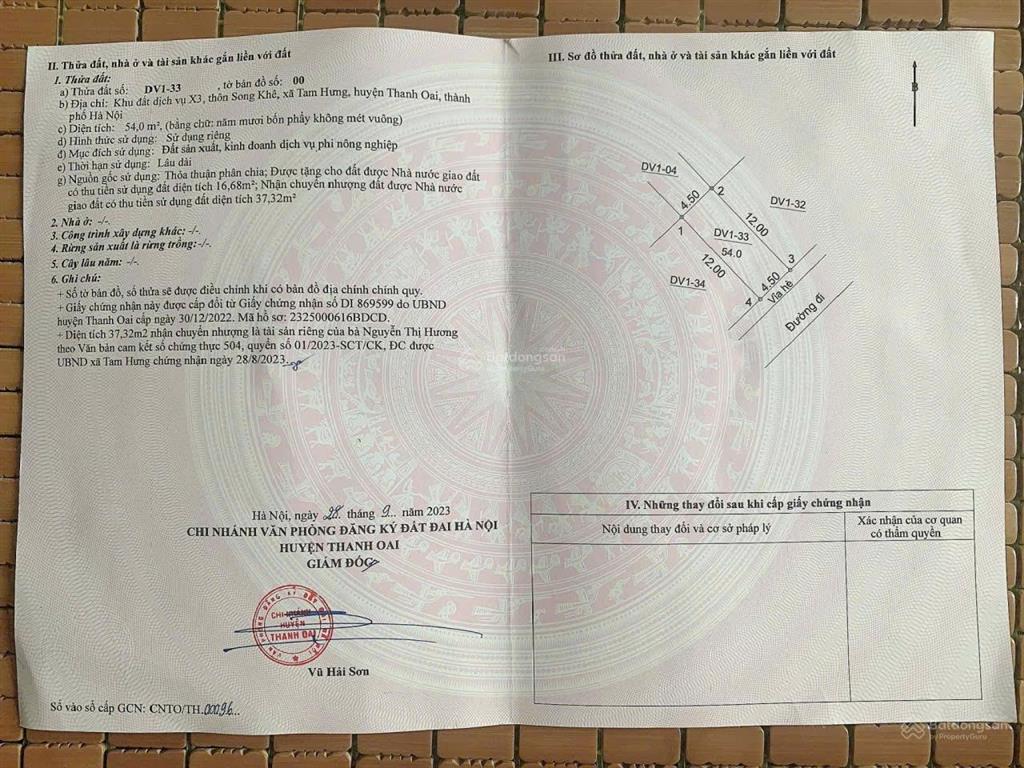 II. Thửa đất, nhà ở và tài sản khác gắn liền với đất
1. Thửa đất:
a) Thửa đất số: DV1-33 , tờ bản đồ số: 00
b) Địa chỉ: Khu đất dịch vụ X3, thôn Song Khê, xã Tam Hưng, huyện Thanh Oai, thành
phố Hà Nội
c) Diện tích: 54,0 m², (bằng chữ: năm mươi bốn phẩy không mét vuông)
d) Hình thức sử dụng: Sử dụng riêng
đ) Mục đích sử dụng: Đất sản xuất, kinh doanh dịch vụ phi nông nghiệp
e) Thời hạn sử dụng: Lâu dài
g) Nguồn gốc sử dụng: Thỏa thuận phân chia; Được tặng cho đất được Nhà nước giao đất
có thu tiền sử dụng đất diện tích 16,68m²; Nhận chuyển nhượng đất được Nhà nước
giao đất có thu tiền sử dụng đất diện tích 37,32m²
2. Nhà ở: -/-.
3. Công trình xây dựng khác: -/-.
4. Rừng sản xuất là rừng trồng:-/-.
5. Cây lâu năm: -/-.
6. Ghi chú:
+ Số tờ bản đồ, số thửa sẽ được điều chỉnh khi có bản đồ địa chính chính quy.
+ Giấy chứng nhận này được cấp đổi từ Giấy chứng nhận số DI 869599 do UBND
huyện Thanh Oai cấp ngày 30/12/2022. Mã hồ sơ: 2325000616BDCD.
+ Diện tích 37,32m2 nhận chuyển nhượng là tài sản riêng của bà Nguyễn Thị Hương
theo Văn bản cam kết số chứng thực 504, quyển số 01/2023-SCT/CK, ĐC được
UBND xã Tam Hưng chứng nhận ngày 28/8/2023.
Hà Nội, ngày 28 tháng 9 năm 2023
CHI NHÁNH VĂN PHÒNG ĐĂNG KÝ ĐẤT ĐAI HÀ NỘI
HUYỆN THANH OAI
GIÁM ĐỐC
VĂN PHÒNG ĐĂNG KÝ ĐẤT ĐAI HÀ NỘI
CHI NHÁNH
HUYỆN
THANH OAI
Vũ Hải Sơn
Số vào sổ cấp GCN: CNTO/TH.00096...
III. Sơ đồ thửa đất, nhà ở và tài sản khác gắn liền với đất
B
DV1-04
2
4.50
DV1-32
1
12.00
DV1-33
54.0
3
12.00
DV1-34
4.50
4
Vỉa hè
Đường đi
IV. Những thay đổi sau khi cấp giấy chứng nhận
Nội dung thay đổi và cơ sở pháp lý
Xác nhận của cơ quan
có thẩm quyền
Batdongsan
by PropertyGuru
Batdongsan
by PropertyGuru